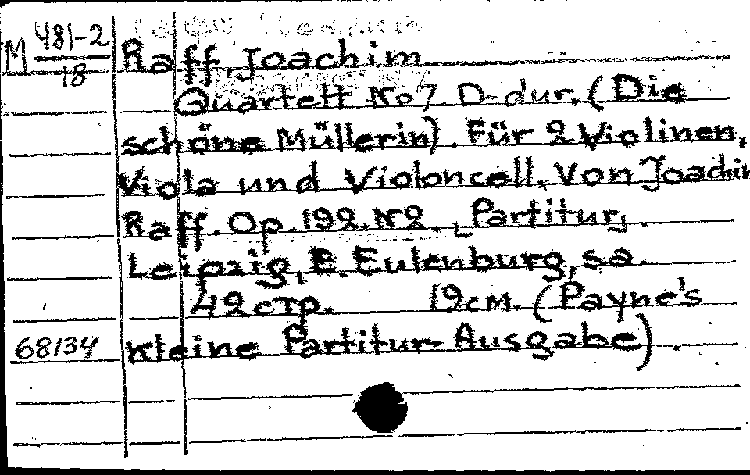 M 481-2
18
Raff, Joachim
Quartett No 7 D-dur. (Die
schöne Müllerin). Für 2 Violinen,
Viola und Violoncell. Von Joachim
Raff. Op. 192. No 2. [Partitur].
Leipzig, E. Eulenburg, s.a.
42стр. 19см. (Payne's
68134 kleine Partitur-Ausgabe).